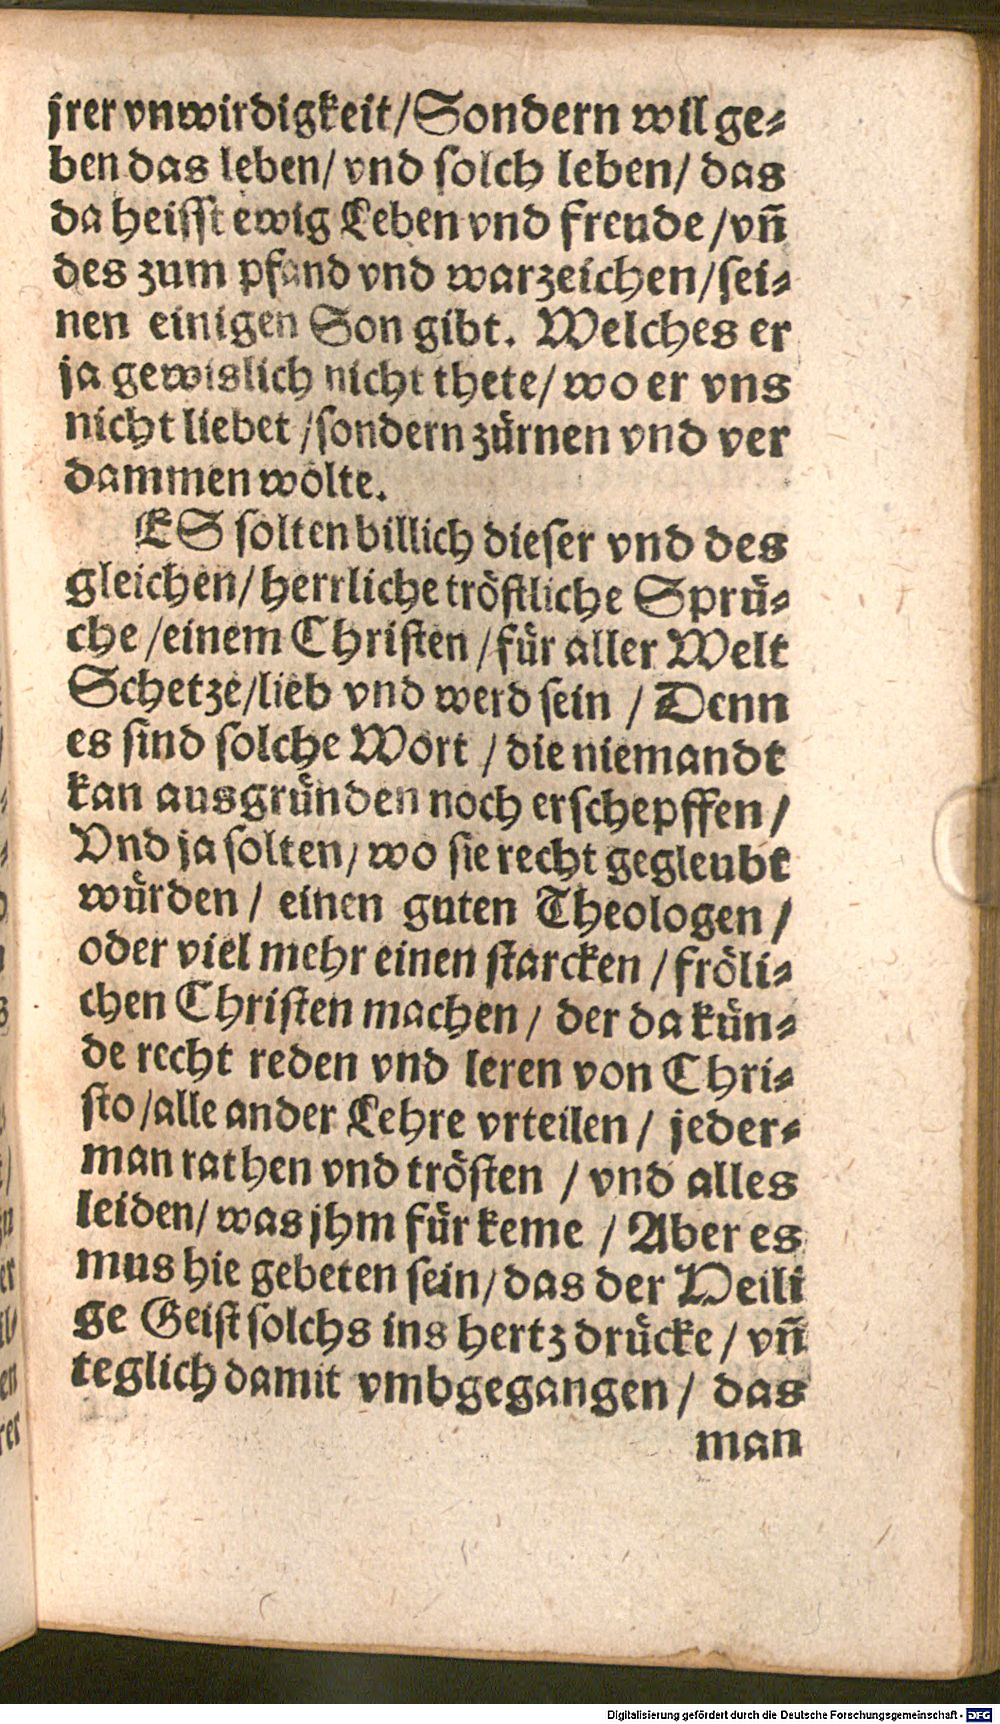 jrer vnwirdigkeit/ Sondern wil ge-
ben das leben/ vnd solch leben/ das
da heisst ewig Leben vnd freude/ vn̄
des zum pfand vnd warzeichen/ sei-
nen einigen Son gibt. Welches er
ja gewislich nicht thete/ wo er vns
nicht liebet/ sondern zürnen vnd ver
dammen wolte.
ES solten billich dieser vnd des
gleichen/ herrliche tröstliche Sprü-
che/ einem Christen/ für aller Welt
Schetze/ lieb vnd werd sein/ Denn
es sind solche Wort/ die niemandt
kan ausgründen noch erschepffen/
Vnd ja solten/ wo sie recht gegleubt
würden/ einen guten Theologen/
oder viel mehr einen starcken/ fröli-
chen Christen machen/ der da kün-
de recht reden vnd leren von Chri-
sto/ alle ander Lehre vrteilen/ jeder-
man rathen vnd trösten/ vnd alles
leiden/ was jhm für keme/ Aber es
mus hie gebeten sein/ das der Heili
ge Geist solchs ins hertz drücke/ vn̄
teglich damit vmbgegangen/ das
man
Digitalisierung gefördert durch die Deutsche Forschungsgemeinschaft - DFG